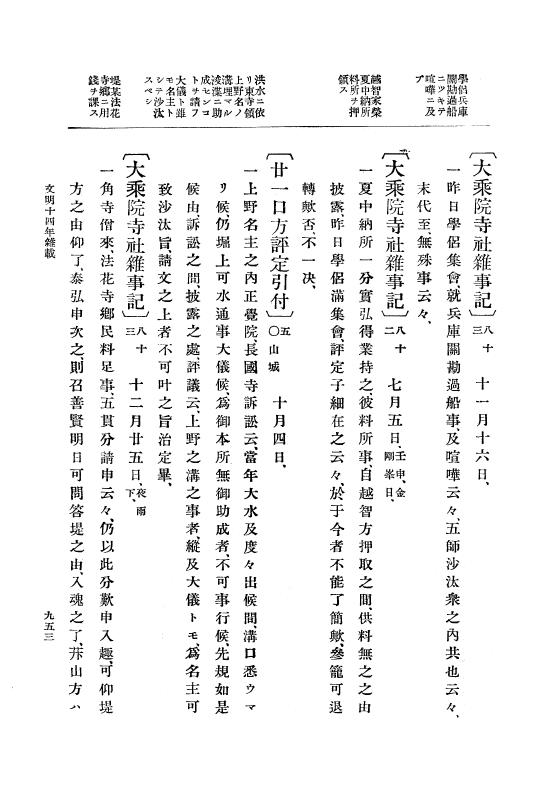 學侶兵庫
關勘過船
ニツキテ
喧嘩ニ及
ブ
越智家榮
夏中納所
料所ヲ押
領ス
洪水ニ依
リ東寺領
上野名ノ
溝埋マル
浚渫ニ助
成センコ
トヲ請フ
大儀ト雖
モ名主ト
シテ沙汰
スベシ
堤某法花
寺鄉ニ用
錢ヲ課ス
〔大乘院寺社雜事記〕八十三 十一月十六日、
一昨日學侶集會、就兵庫關勘過船事、及喧嘩云々、五師沙汰衆之內共也云々、
末代至無殊事云々、
〔大乘院寺社雜事記〕八十二 七月五日、壬申、金剛峯日、
一夏中納所一分實弘得業持之、彼料所事、自越智方押取之間、供料無之之由
披露、昨日學侶滿集會、評定子細在之云々、於于今者不能了簡歟、參籠可退
轉歟否、不一決、
〔廿一口方評定引付〕五〇山城 十月四日、
一上野名主之內正覺院、長國寺訴訟云、當年大水及度々出候間、溝口悉ウマ
リ候、仍堀上可水通事大儀候、爲御本所無御助成者、不可事行候、先規如是
候由、訴訟之間、披露之處、評議云、上野之溝之事者、縱及大儀トモ、爲名主可
致沙汰旨、請文之上者、不可叶之旨治定畢、
〔大乘院寺社雜事記〕八十三 十二月廿五日、夜雨下、
一角寺僧來、法花寺鄉民料足事、五貫分請申云々、仍以此分歎申入趣、可仰堤
方之由仰了、泰弘申次之、則召善賢明日可問答堤之由、入魂之了、幷山方ハ
文明十四年雜載
九五三